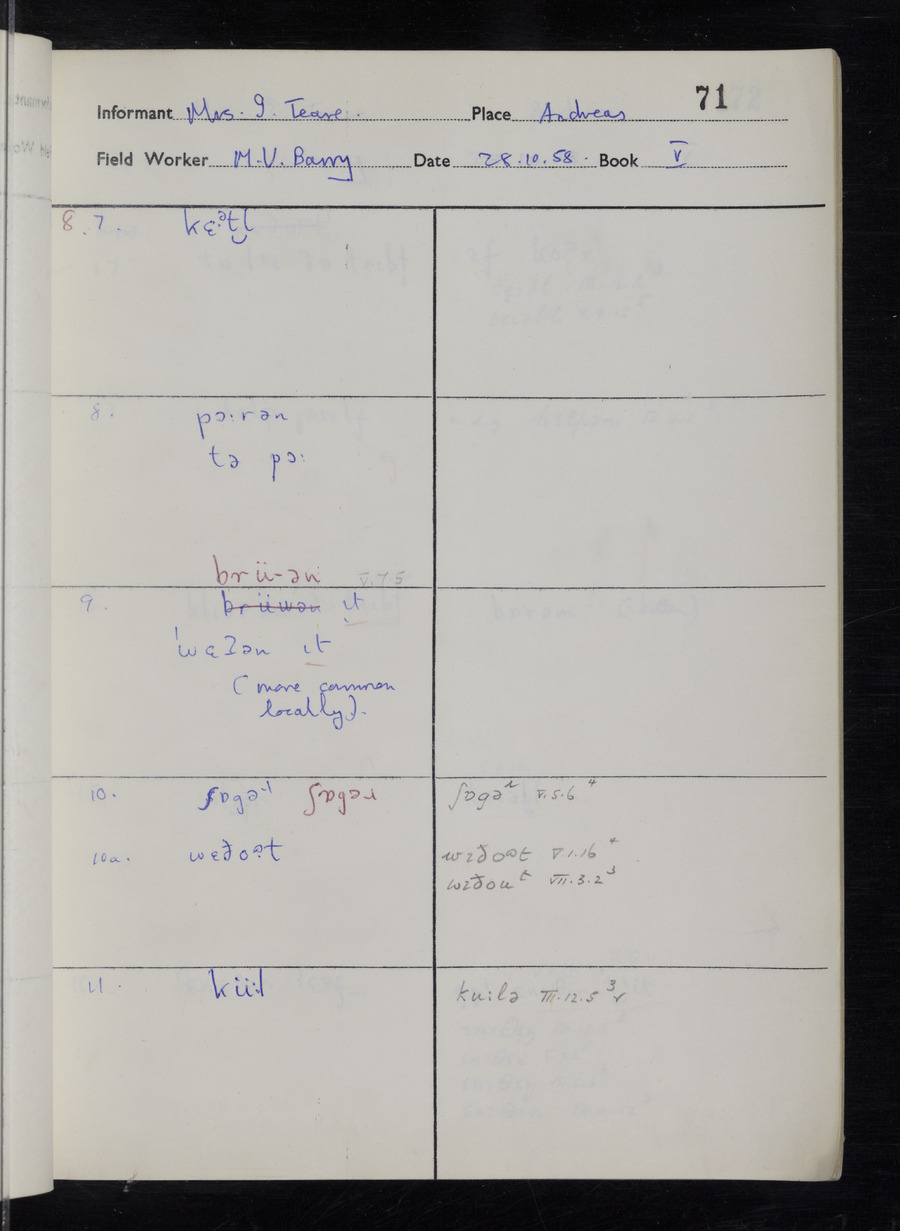 71
Informant Mrs. I. Teare. Place Andreas
Field Worker M.V. Barry Date 28.10.58. Book V
8.7. kɛ·ətl̩
8. pɔːrən
tə pɔː
brü-ən V.7.5
9. brüwən ɪt
ˈwɛʔən ɪt
(more common
locally).
10. ʃɒgəɹ ʃɒgəɹ ʃɒgəɹ V.5.6 4
10a. wɛðoət wɪðoət V.1.16 4
wɪðout VII.3.2 3
11. küːl kuːlə III.12.5 3